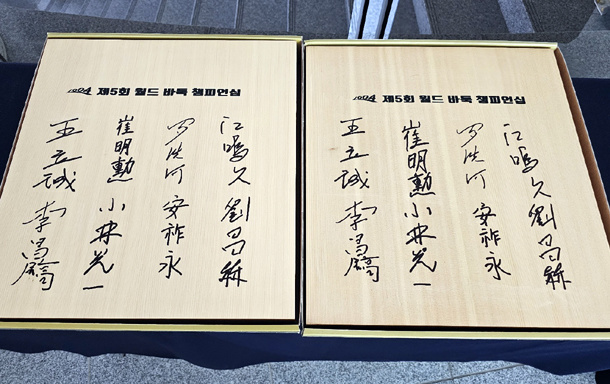 1004 제5회 월드 바둑 챔피언십
江鸣久 劉昌赫
罗洗河 安祚永
崔明勳 小林光一
王立诚 李昌鎬
1004 제5회 월드 바둑 챔피언십
江鸣久 劉昌赫
罗洗河 安祚永
崔明勳 小林光一
王立诚 李昌鎬